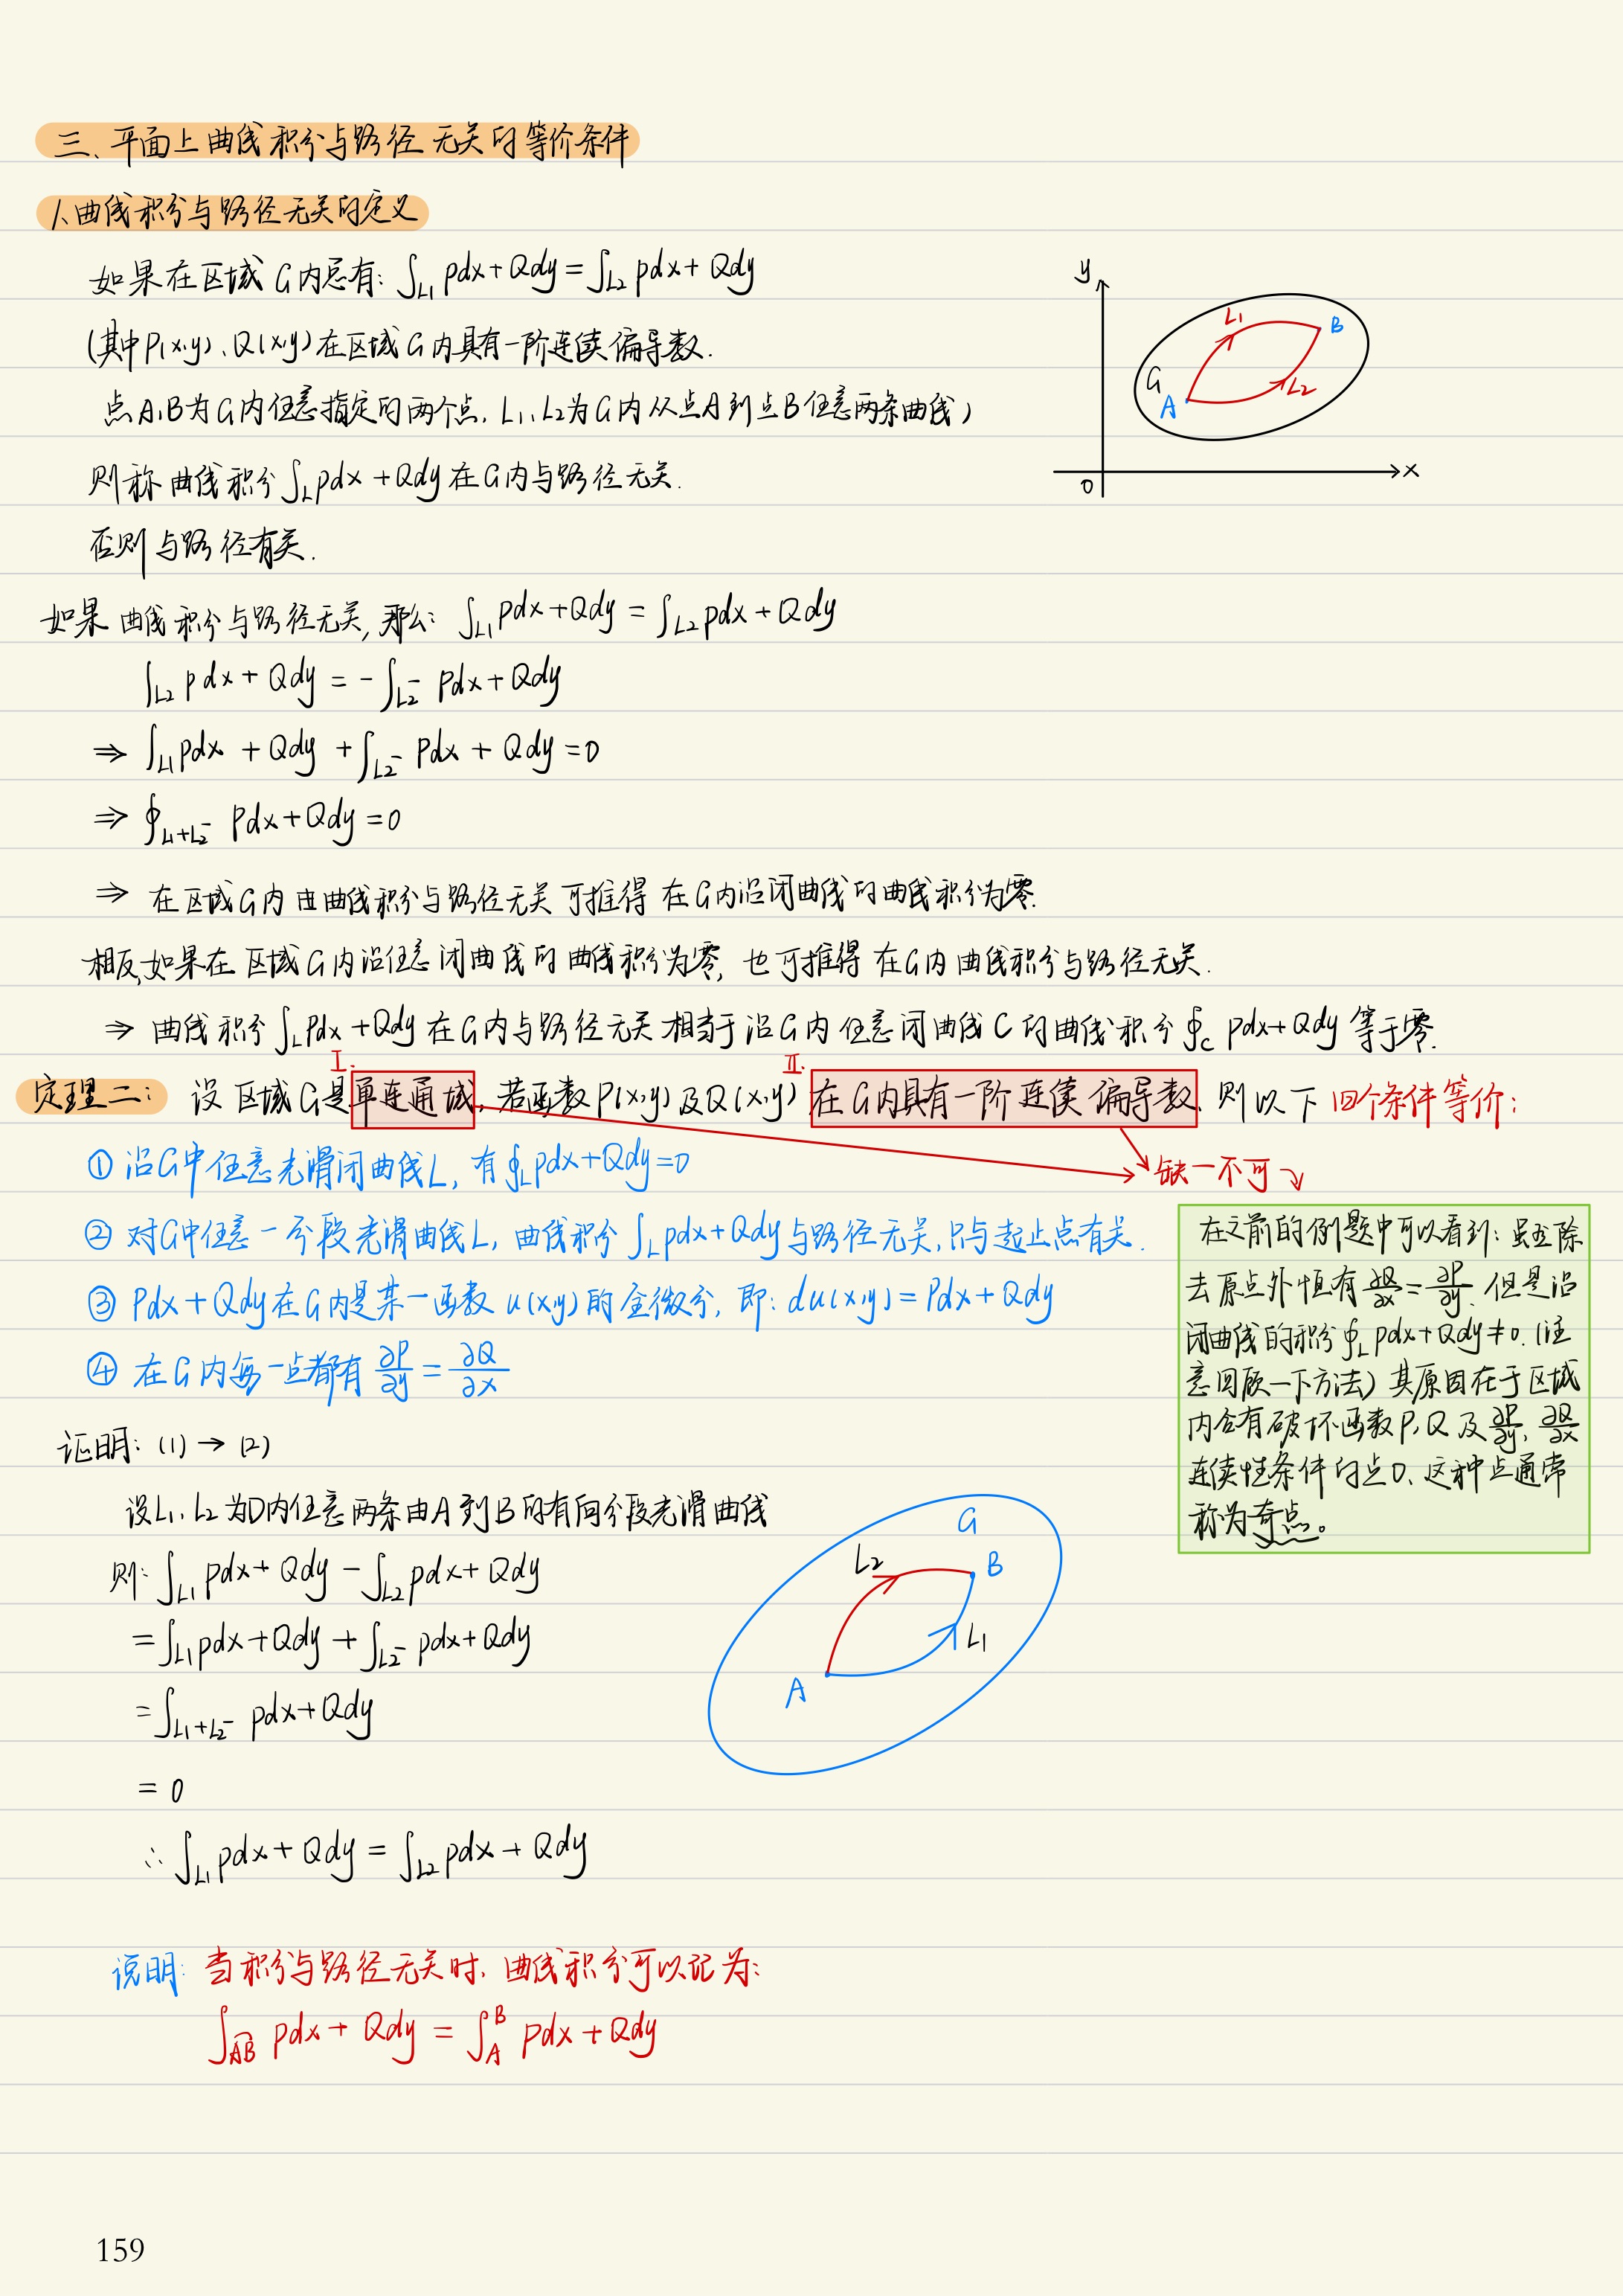 三、平面上曲线积分与路径无关的等价条件
1、曲线积分与路径无关的定义
如果在区域G内总有: ∫_{L1} Pdx+Qdy=∫_{L2} Pdx+Qdy
(其中P(x,y)、Q(x,y)在区域G内具有一阶连续偏导数.
点A,B为G内任意指定的两个点, L1,L2为G内从点A到点B任意两条曲线)
则称曲线积分∫_L Pdx+Qdy在G内与路径无关.
否则与路径有关.
y
L1
B
G
A
L2
0
x
如果曲线积分与路径无关,那么: ∫_{L1} Pdx+Qdy=∫_{L2} Pdx+Qdy
∫_{L2} Pdx+Qdy=-∫_{L2⁻} Pdx+Qdy
⇒ ∫_{L1} Pdx+Qdy+∫_{L2⁻} Pdx+Qdy=0
⇒ ∮_{L1+L2⁻} Pdx+Qdy=0
⇒ 在区域G内由曲线积分与路径无关可推得在G内沿闭曲线的曲线积分为零.
相反,如果在区域G内沿任意闭曲线的曲线积分为零,也可推得在G内曲线积分与路径无关.
⇒ 曲线积分∫_L Pdx+Qdy在G内与路径无关相当于沿G内任意闭曲线C的曲线积分∮_C Pdx+Qdy等于零.
I. II.
定理二: 设区域G是单连通域,若函数P(x,y)及Q(x,y)在G内具有一阶连续偏导数,则以下四个条件等价:
① 沿G中任意光滑闭曲线L,有∮_L Pdx+Qdy=0
缺一不可
② 对G中任意一分段光滑曲线L,曲线积分∫_L Pdx+Qdy与路径无关,只与起止点有关.
③ Pdx+Qdy在G内是某一函数u(x,y)的全微分,即: du(x,y)=Pdx+Qdy
④ 在G内每一点都有 ∂P/∂y=∂Q/∂x
在之前的例题中可以看到:虽然除
去原点外恒有∂Q/∂x=∂P/∂y,但是沿
闭曲线的积分∮_L Pdx+Qdy≠0.(注
意回顾一下方法)其原因在于区域
内含有破坏函数P,Q及∂P/∂y,∂Q/∂x
连续性条件的点O,这种点通常
称为奇点。
证明: (1)→(2)
设L1,L2为D内任意两条由A到B的有向分段光滑曲线
则: ∫_{L1} Pdx+Qdy-∫_{L2} Pdx+Qdy
=∫_{L1} Pdx+Qdy+∫_{L2⁻} Pdx+Qdy
=∫_{L1+L2⁻} Pdx+Qdy
=0
∴ ∫_{L1} Pdx+Qdy=∫_{L2} Pdx+Qdy
G
L2
B
L1
A
说明: 当积分与路径无关时,曲线积分可以记为:
∫_{AB} Pdx+Qdy=∫_A^B Pdx+Qdy
159